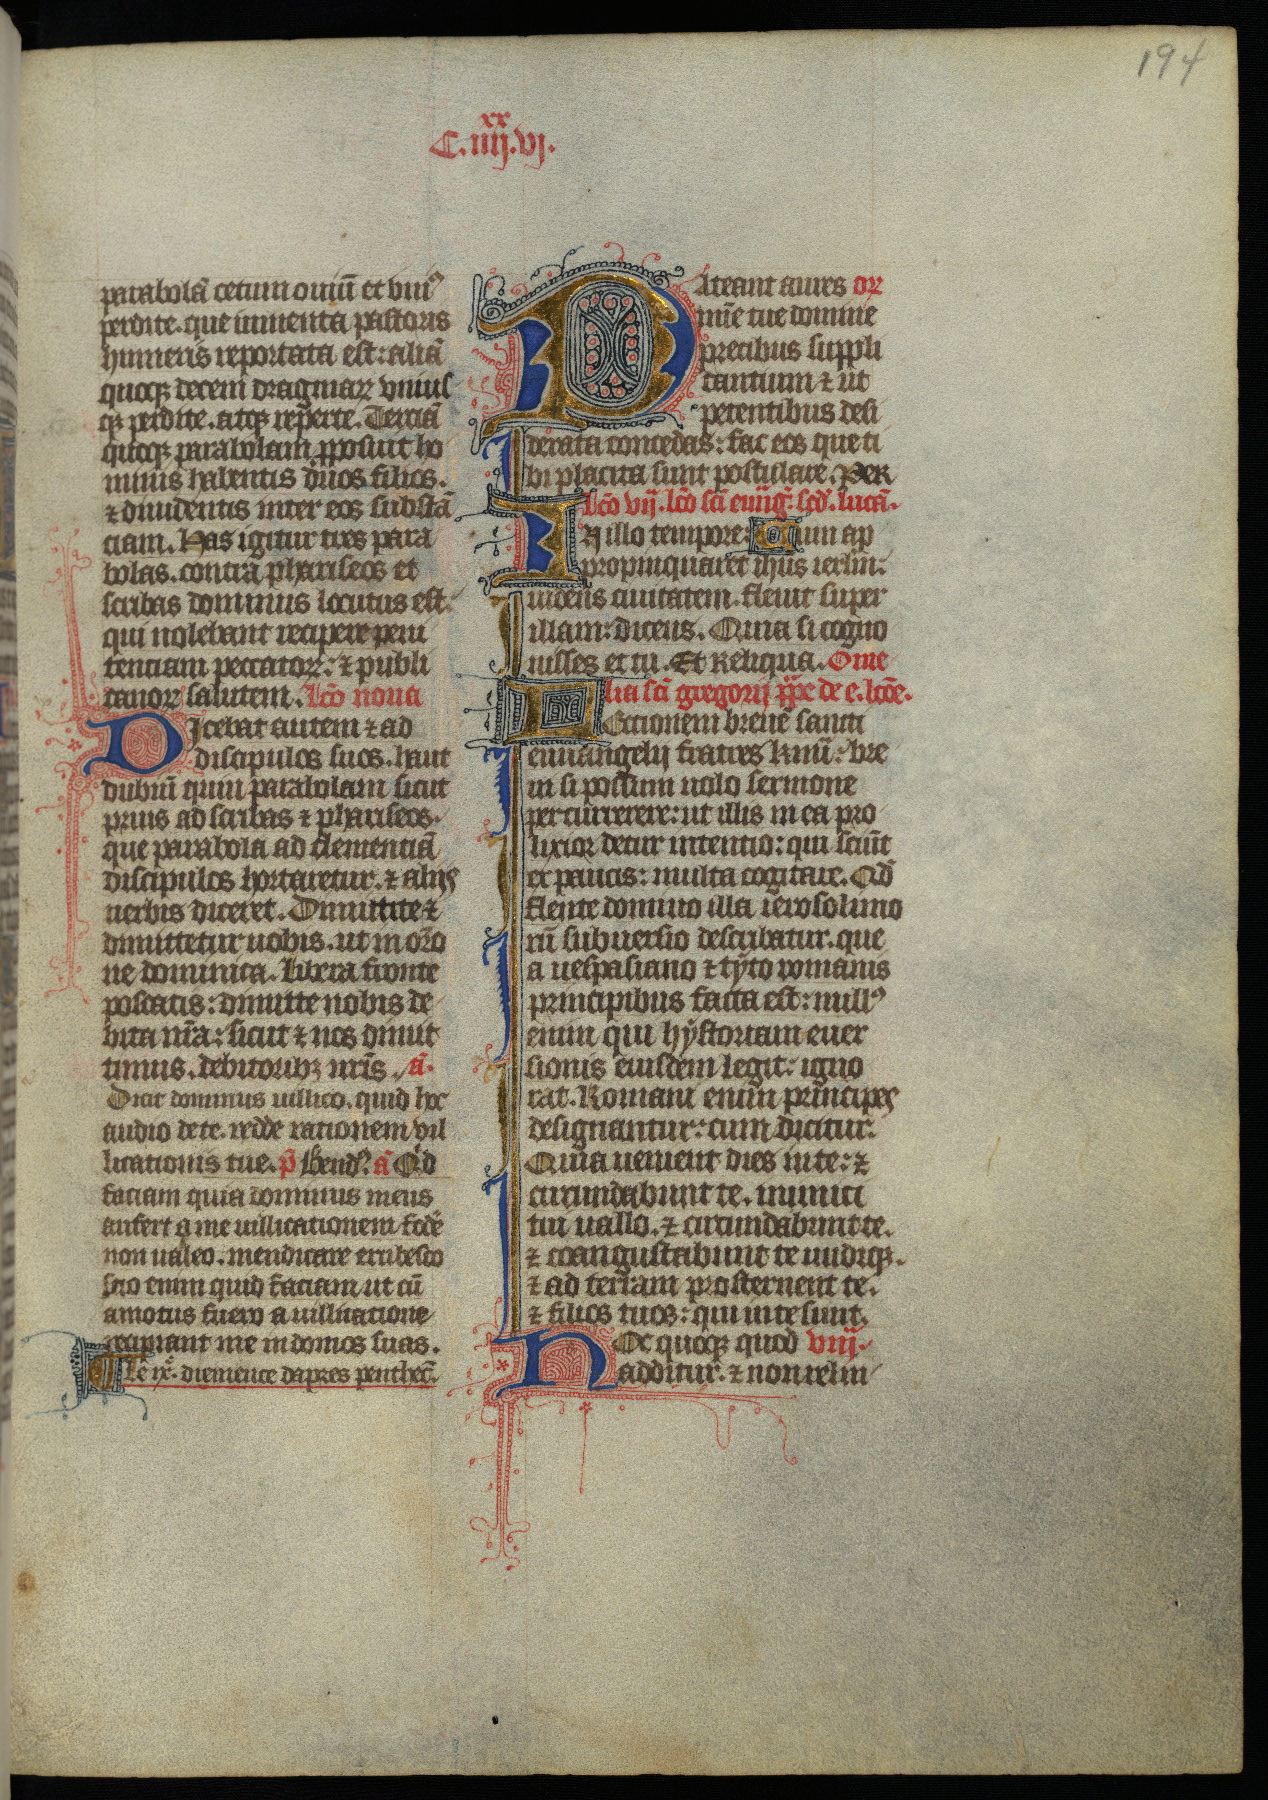 194
xx
C.iiij.vj.
parabolā cetum ouiū et vniꝰ
perdite. que inuenta pastoris
humeris reportata est: aliā
quoqꝫ decem dragmaꝝ vnius
qꝫ perdite. atqꝫ reꝑerte. Terciā
quoqꝫ parabolam ꝓposuit ho
minis habentis duos filios.
⁊ diuidentis inter eos substā
ciam. Has igitur tres para
bolas. contra phariseos et
scribas dominus locutus est.
qui nolebant recipere peni
tenciam peccatoꝝ: ⁊ publi
canoꝝ salutem. Lcō nona
Dicebat autem ⁊ ad
discipulos suos. haut
dubiū quin parabolam sicut
prius ad scribas ⁊ phariseos.
que parabola ad clementiā
discipulos hortaretur. ⁊ alijs
uerbis diceret. Dimittite ⁊
dimittetur uobis. ut in or̄o
ne dominica. libera fronte
poscatis: dimitte nobis de
bita nr̄a: sicut ⁊ nos dimit
timus. debitoribꝫ nr̄is. a͞.
Dicit dominus uillico. quid hoc
audio de te. redde rationem vil
licationis tue. p̄ Bendꝰ. a͞ Qͥd
faciam quia dominus meus
aufert a me uillicationem fodē
non ualeo. mendicare erubesco
scio enim quid faciam ut cū
amotus fuero a uillicatione
recipiant me in domos suas.
Le ix.ͤ diemence dapres penthec̄.
Pateant aures or
mīe tue domine
precibus suppli
cantium ⁊ ut
petentibus desi
derata concedas: fac eos que ti
bi placita sunt postulare. PER
Lcō vij. lcō sc̄i euuāg. scd̄. lucā.
In illo tempore: Cum ap
propinquaret ih̄us ierl̄m:
uidens ciuitatem. fleuit super
illam: dicens. Quia si cogno
uisses et tu. Et Reliqua. Ome
lia sc̄i gregorij pp̄e de e. lcōe.
Lectionem breuē sancti
euuangelij fratres k̄mi: bre
ui si possum uolo sermone
percurrerere: ut illis in ea pro
lixior detur intentio: qui sciūt
ex paucis: multa cogitare. Qd̄
flente domino illa ierosolimo
rū subuersio describatur. que
a uespasiano ⁊ tyto romanis
principibus facta est: nullꝰ
enim qui hystoriam euer
sionis eiusdem legit: igno
rat. Romani enim principes
designantur: cum dicitur.
Quia uenient dies in te: ⁊
circundabunt te. inimici
tui uallo. ⁊ circundabunt te.
⁊ coangustabunt te undiqꝫ.
⁊ ad terram prosternent te.
⁊ filios tuos: qui in te sunt.
Hoc quoqꝫ quod viij.
additur. ⁊ non relin